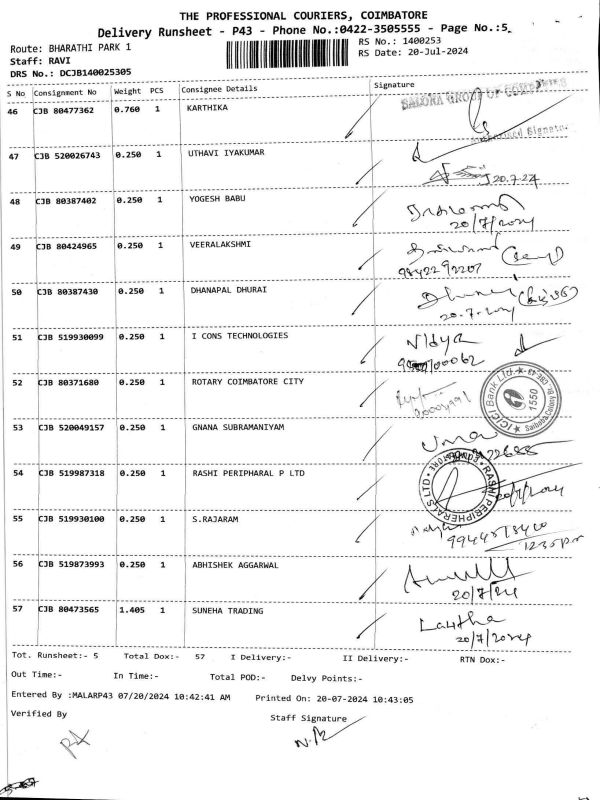 THE PROFESSIONAL COURIERS, COIMBATORE
Delivery Runsheet - P43 - Phone No.:0422-3505555 - Page No.:5
Route: BHARATHI PARK 1
RS No.: 1400253
Staff: RAVI
RS Date: 20-Jul-2024
DRS No.: DCJB140025305
S No Consignment No Weight PCS Consignee Details Signature
46 CJB 80477362 0.760 1 KARTHIKA
47 CJB 520026743 0.250 1 UTHAVI IYAKUMAR
20.7.24
48 CJB 80387402 0.250 1 YOGESH BABU
20/7/2024
49 CJB 80424965 0.250 1 VEERALAKSHMI
9842292207
50 CJB 80387430 0.250 1 DHANAPAL DHURAI
20.7.2024
51 CJB 519930099 0.250 1 I CONS TECHNOLOGIES
Nidya
52 CJB 80371680 0.250 1 ROTARY COIMBATORE CITY
ICICI Bank Ltd. 1550 Saibaba Colony Br. CBE-43
53 CJB 520049157 0.250 1 GNANA SUBRAMANIYAM
Uma
54 CJB 519987318 0.250 1 RASHI PERIPHARAL P LTD
RASHI PERIPHERALS LTD
20/7/2024
55 CJB 519930100 0.250 1 S.RAJARAM
12.35pm
56 CJB 519873993 0.250 1 ABHISHEK AGGARWAL
20/7/24
57 CJB 80473565 1.405 1 SUNEHA TRADING
Lavtha
20/7/2024
Tot. Runsheet:- 5 Total Dox:- 57 I Delivery:- II Delivery:- RTN Dox:-
Out Time:- In Time:- Total POD:- Delvy Points:-
Entered By :MALARP43 07/20/2024 10:42:41 AM Printed On: 20-07-2024 10:43:05
Verified By
Staff Signature